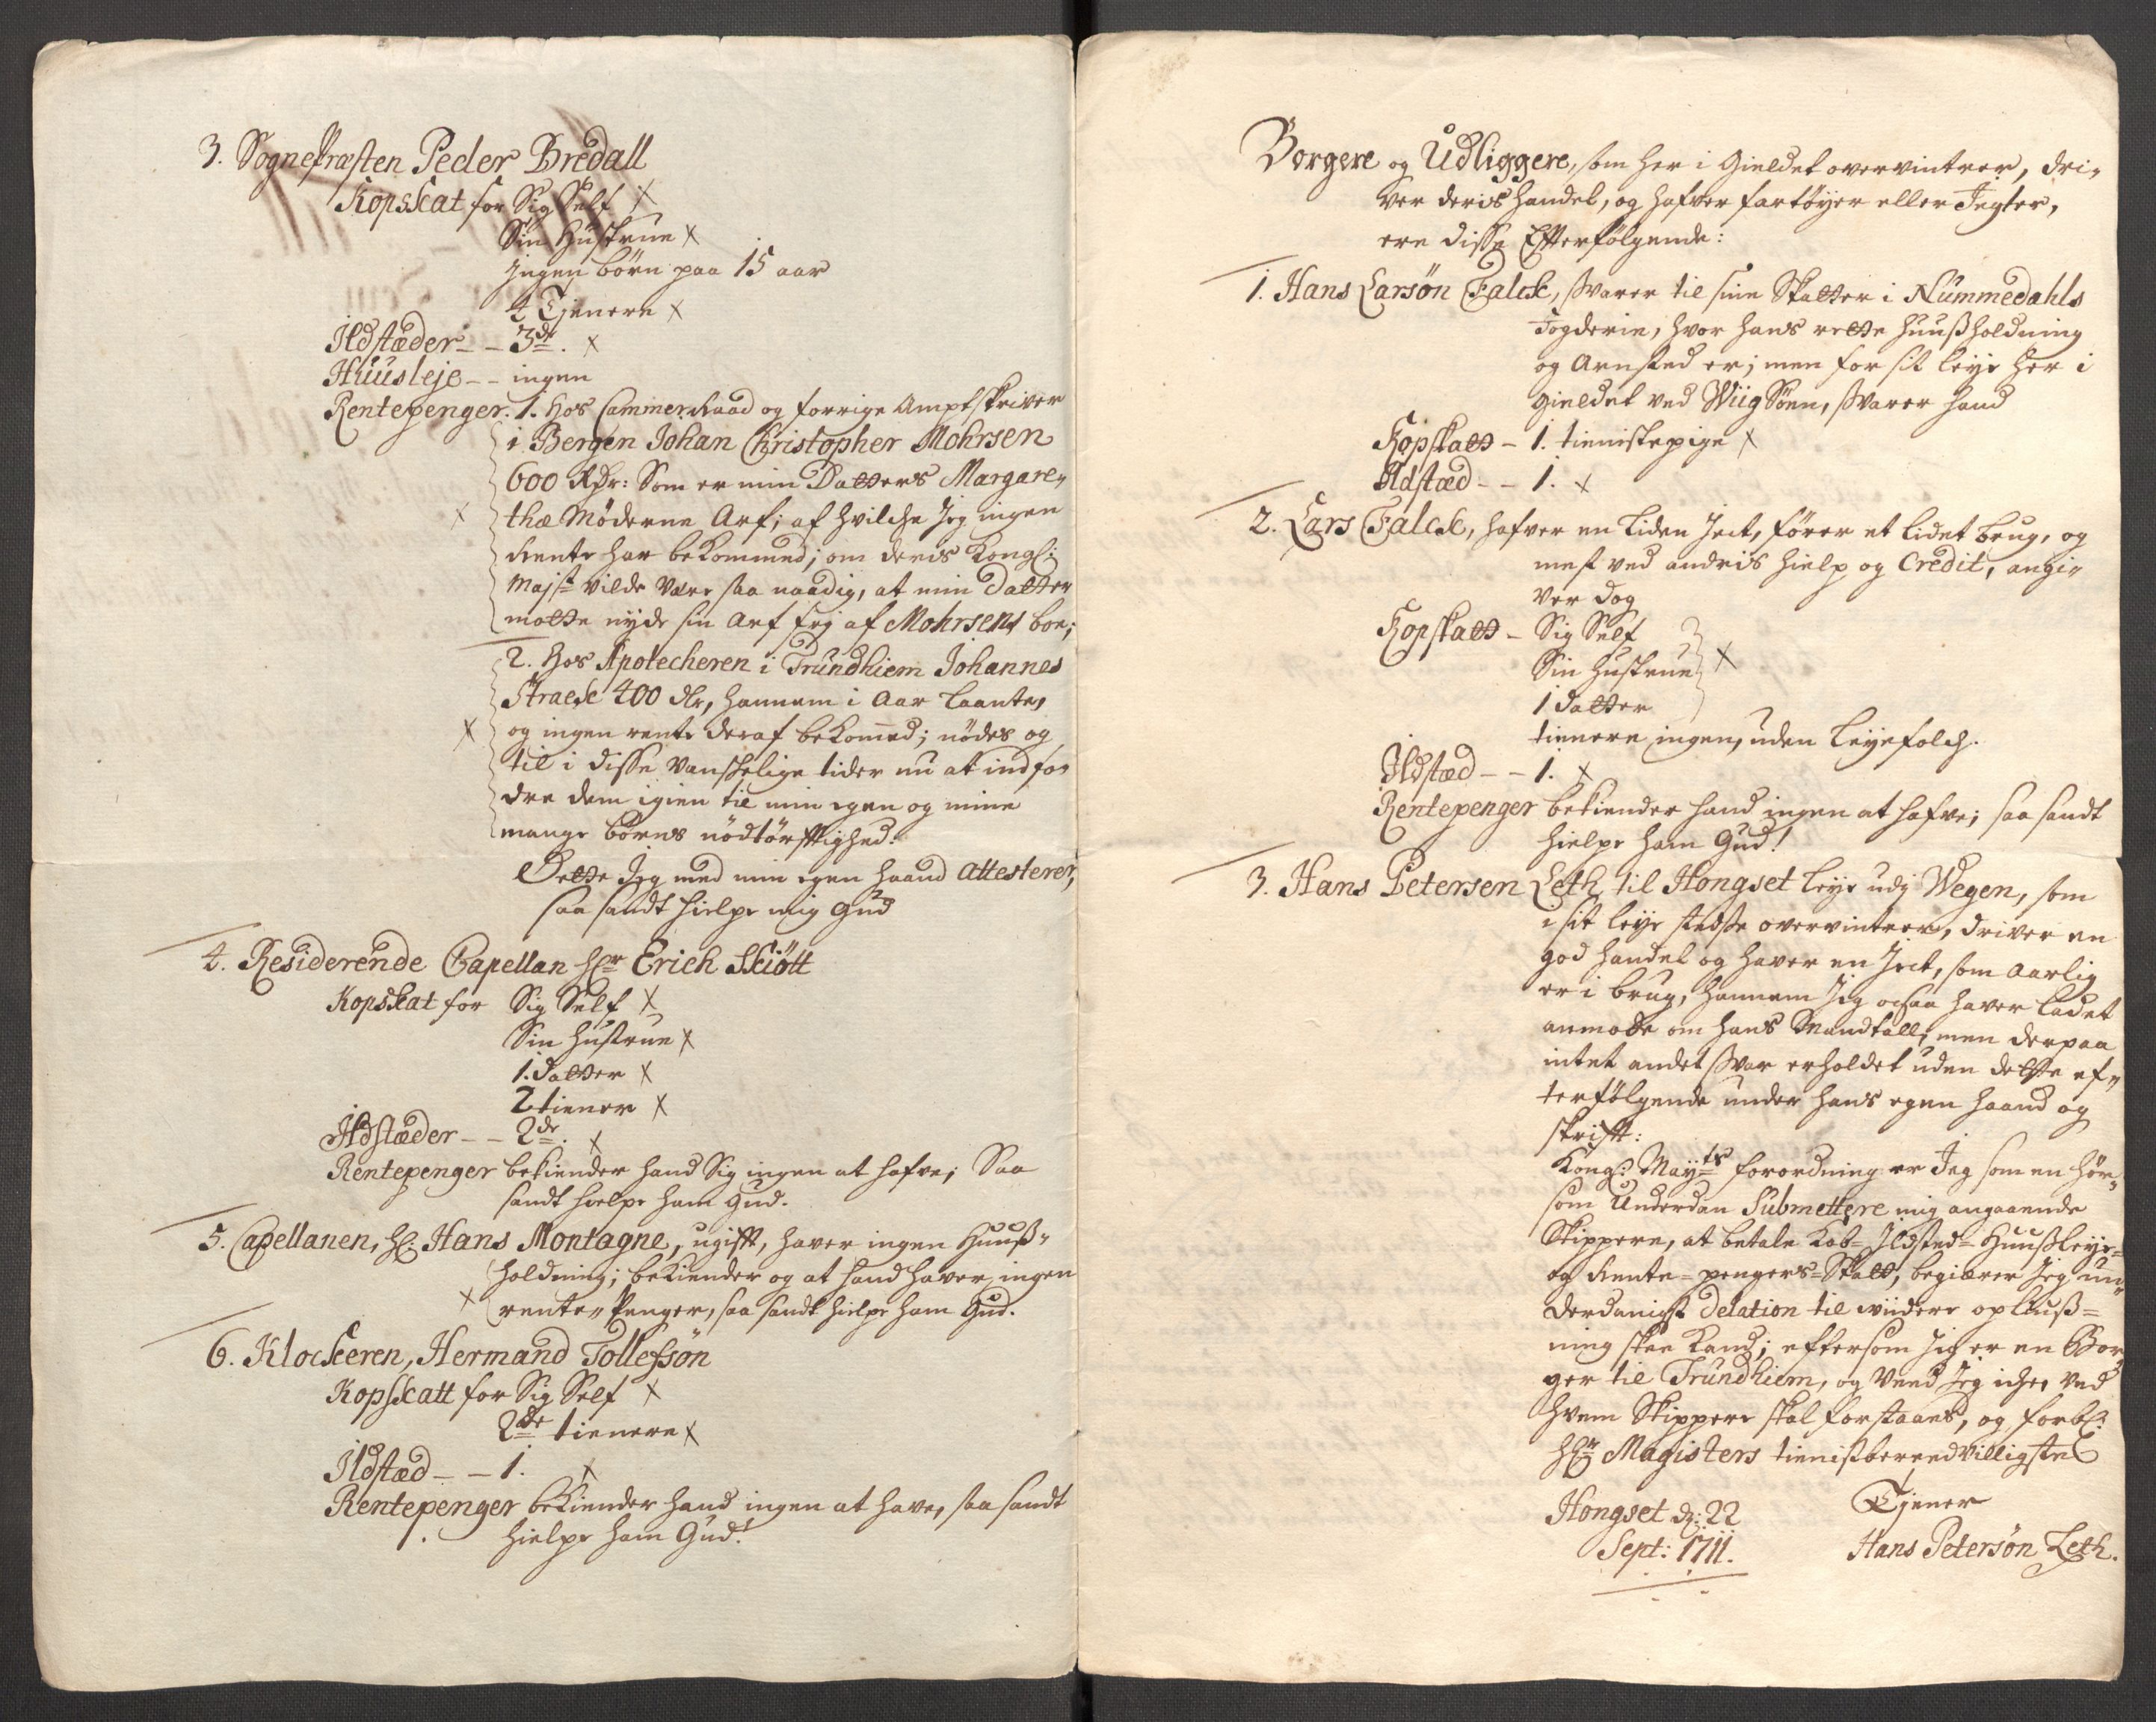 3. Sognepræsten Peder Bredall
Kopskat for Sig Self X
Sin Hustrue X
Ingen børn paa 15 aar
4 Tjenere X
Ildstæder - - 3de. X
Huusleje - - ingen
Rentepenger. 1. Hos Cammerraad og forrige Amptskriver
i Bergen Johan Christopher Mohrsen
600 Rdr: Som er min Datters Margare-
thæ Møderne Arf; af hvilche Jeg ingen
Rente har bekommed; om deris Kongl:
Majst vilde være saa naadig, at min Datter
motte nyde sin Arf frj af Mohrsens boe;
2. Hos Apotecheren i Trundhiem Johannes
Stræck 400 Rdr, hannem i Aar laante,
og ingen rente deraf bekommed; nödes og
til i disse vanskelige tider nu at indfor
dre dem igien til min egen og mine
mange børns nödtörfftighed.
Dette Jeg med min egen haand attesterer,
saa sandt hielpe mig Gud
4. Residerende Capellan Hr Erich Skiött
Kopskat for Sig Self X
Sin Hustrue X
1. Datter X
2 tiener X
Ildstæder - - 2de. X
Rentepenger bekiender hand Sig ingen at hafve; Saa
sandt hielpe ham Gud.
5. Capellanen, Hr: Hans Montagne, ugifft, haver ingen Huuß-
holdning; bekiender og at hand haver ingen
X rente-Penger, saa sandt hielpe ham Gud.
6. Klockeren, Hermand Tollefsøn
Kopskatt for Sig Self X
2de tienere X
Ildstæd - - 1. X
Rentepenger bekiender hand ingen at have, saa sandt
hielpe ham Gud!
Borgere og Udliggere, som her i Gieldet overvintrer, dri-
ver deris handel, og hafver fartøyer eller Jegter,
ere disse Efterfølgende:
1. Hans Larsøn Falck, svarer til sine Skatter i Nummedahls
Fogderie, hvor hans rette huußholdning
og Arnsted er; men for sit leye her i
Gieldet ved Wiig Söen, svarer hand
Kopskatt - 1. tienistepige X
Ildstæd - - 1. X
2. Lars Falck, hafver en liden Ject, fører et lidet brug, og
mest ved andris hielp og Credit, angi-
ver dog
Kopskatt - Sig Self
Sin Hustrue X
1 Datter
tienere ingen, uden leyefolch.
Ildstæd - - 1. X
Rentepenger bekiender hand ingen at hafve; saa sandt
hielpe ham Gud!
3. Hans Petersen Leth til Hongset leye udj Wegen, som
i sit leye stedse overvintrer, driver en
god handel og haver en Ject, som aarlig
er i brug, hannem Jeg ochsaa haver ladet
anmode om hans Mandtall, men derpaa
intet andet svar erholdet uden dette ef-
terfølgende under hans egen haand og
skrifft:
Kong: Mayts forordning er Jeg som en hør-
som Underdan Submettere mig angaaende
Skippere, at betale Kob- Ildsted- Huußleye-
og Rente-pengers-Skatt, begiærer Jeg un-
derdanigst Delation til widere opliuß-
ning skee kand; eftersom Jeg er en Bor-
ger til Trundhiem, og veed Jeg iche, ved
hvem Skippere skal forstaaes, og forbl:
Hr Magisters tienistberedvilligste
Hongset d: 22 Tjener
Sept: 1711. Hans Petersøn Leth.